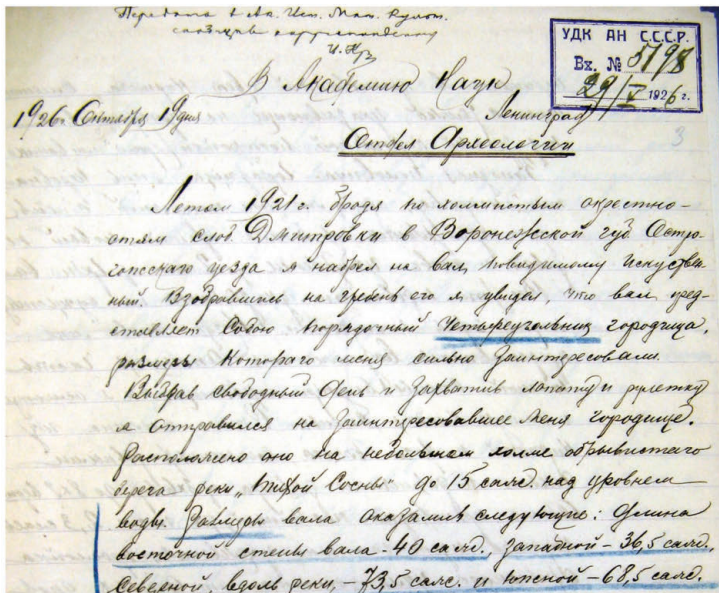 Передать в Ак. Ист. Мат. Культ.
УДК АН С.С.С.Р.
Вх. № 5198
29/V 1926 г.
В Академию Наук
Ленинград
1926 г. Сентября 19 дня
Отдел Археологии
3
Летом 1921 г. бродя по холмистым окрестно-
стям слоб. Дмитровки в Воронежской губ Остро-
гожсскаго уезда я набрел на вал, поводимому искуствен-
ный. Взобравшись на гребень его я увидел, что вал пред-
ставляет собою порядочный четыреугольник городища,
размеры котораго меня сильно заинтересовали.
Выбрав свободный день и захватив лопату и рулетку
я отправился на заинтересовавшее меня городище.
Расположено оно на небольшом холме обрывистаго
берега реки „Тихой Сосны" до 15 саж. над уровнем
воды. Размеры вала оказались следующие: длина
восточной стены вала - 40 саж., западной - 36,5 саж.,
северной, вдоль реки, - 73,5 саж. и южной - 68,5 саж.